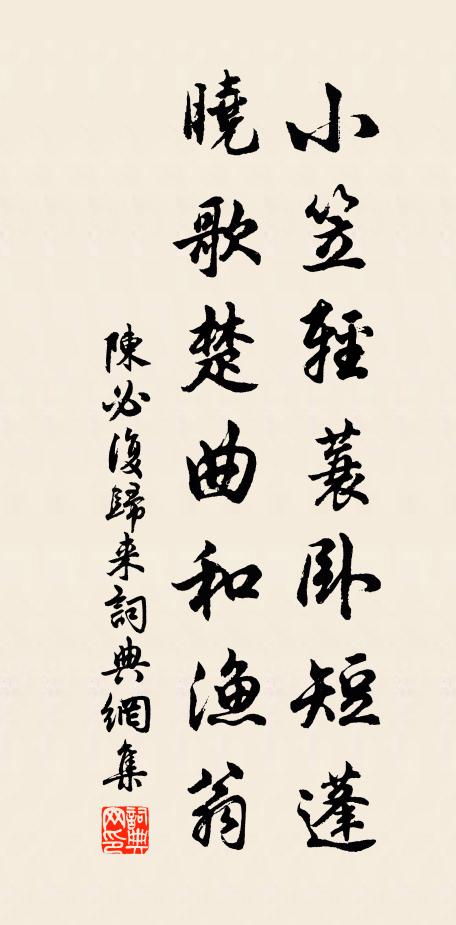 小笠輕蓑卧短蓬
曉歌楚曲和漁翁
陳必復歸来詞典網集
詞典網印